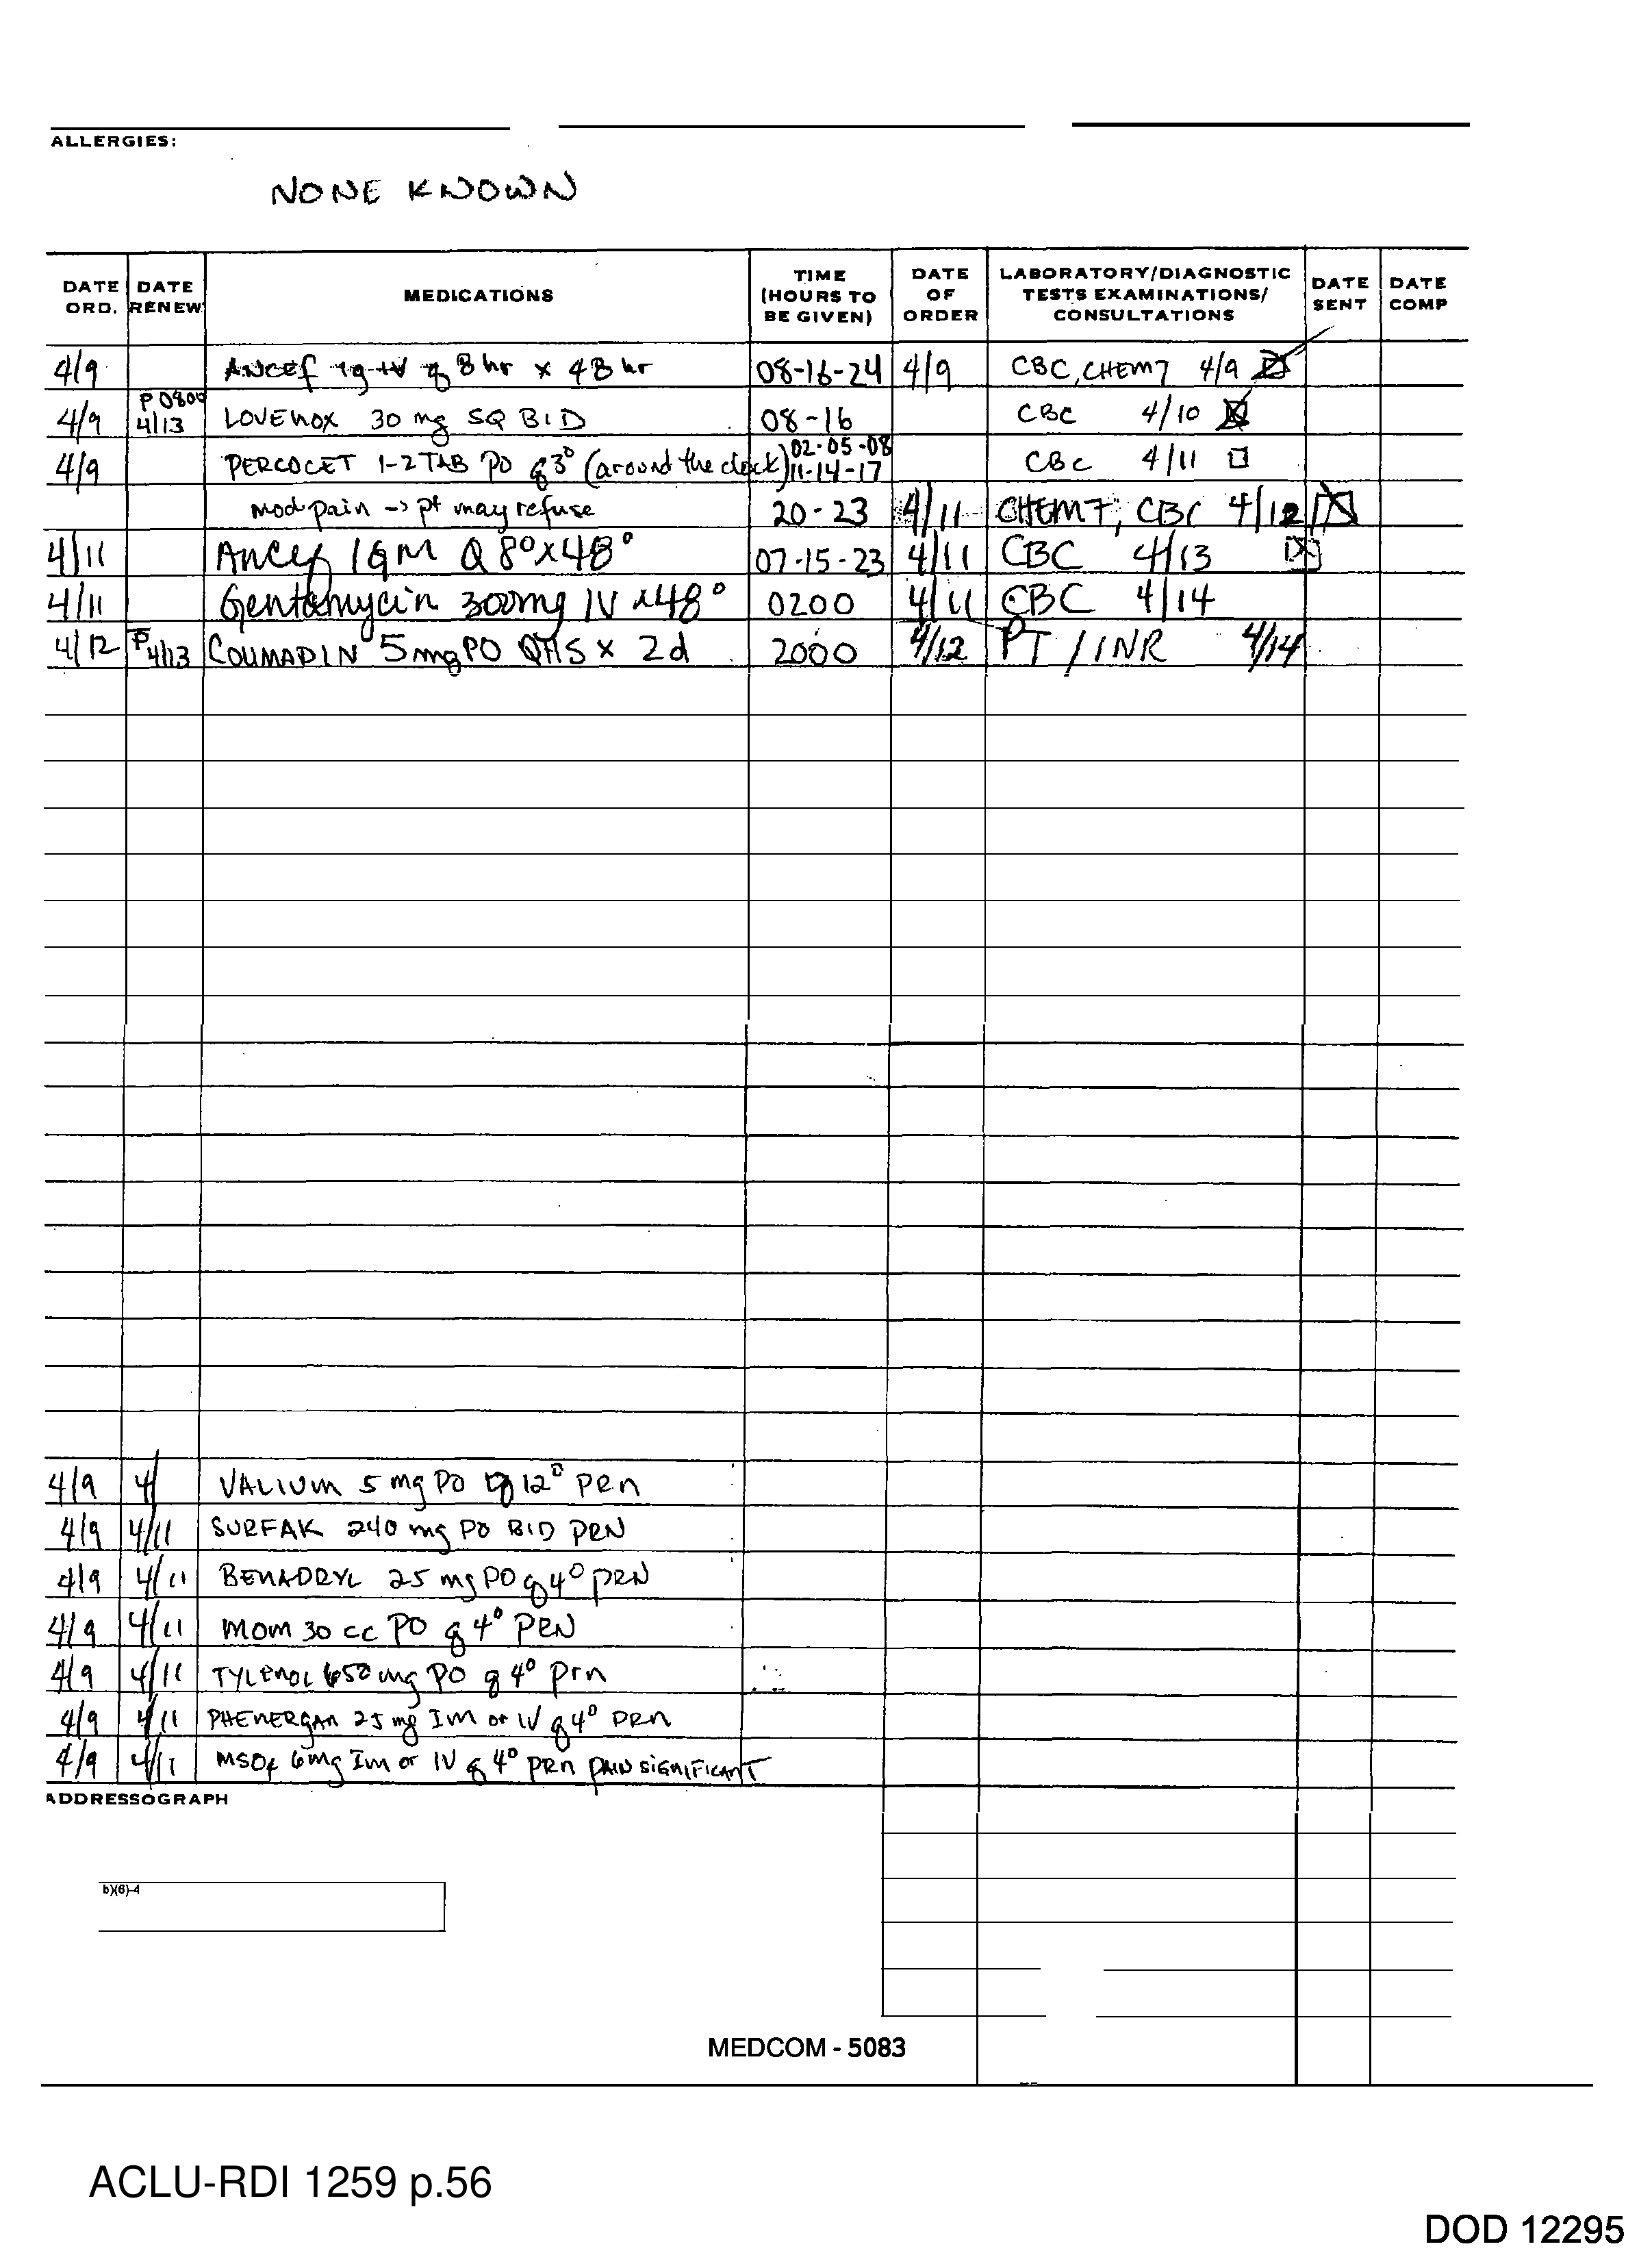 ALLERGIES:
NONE KNOWN
DATE ORD. DATE RENEW MEDICATIONS TIME (HOURS TO BE GIVEN) DATE OF ORDER LABORATORY/DIAGNOSTIC TESTS EXAMINATIONS/ CONSULTATIONS DATE SENT DATE COMP
4/9 ANCEF 1g IV q 8 hr x 48 hr 08-16-24 4/9 CBC, CHEM7 4/9
4/9 P 0800 4/13 LOVENOX 30 mg SQ BID 08-16 CBC 4/10
4/9 PERCOCET 1-2 TAB PO q3° (around the clock) 02-05-08 11-14-17 CBC 4/11
mod pain -> pt may refuse 20-23 4/11 CHEM7, CBC 4/12
4/11 Ancef 1GM Q 8° x 48° 07-15-23 4/11 CBC 4/13
4/11 Gentamycin 300mg IV x48° 0200 4/11 CBC 4/14
4/12 P 4/13 COUMADIN 5mg PO QHS x 2d 2000 4/12 PT / INR 4/14
4/9 4/ VALIUM 5 mg PO q 12° PRN
4/9 4/11 SURFAK 240 mg PO BID PRN
4/9 4/11 BENADRYL 25 mg PO q 4° PRN
4/9 4/11 MOM 30 cc PO q 4° PRN
4/9 4/11 TYLENOL 650 mg PO q 4° prn
4/9 4/11 PHENERGAN 25 mg IM or IV q 4° PRN
4/9 4/11 MSO4 6mg Im or IV q 4° PRN PAIN SIGNIFICANT
ADDRESSOGRAPH
b)(6)-4
MEDCOM - 5083
ACLU-RDI 1259 p.56
DOD 12295